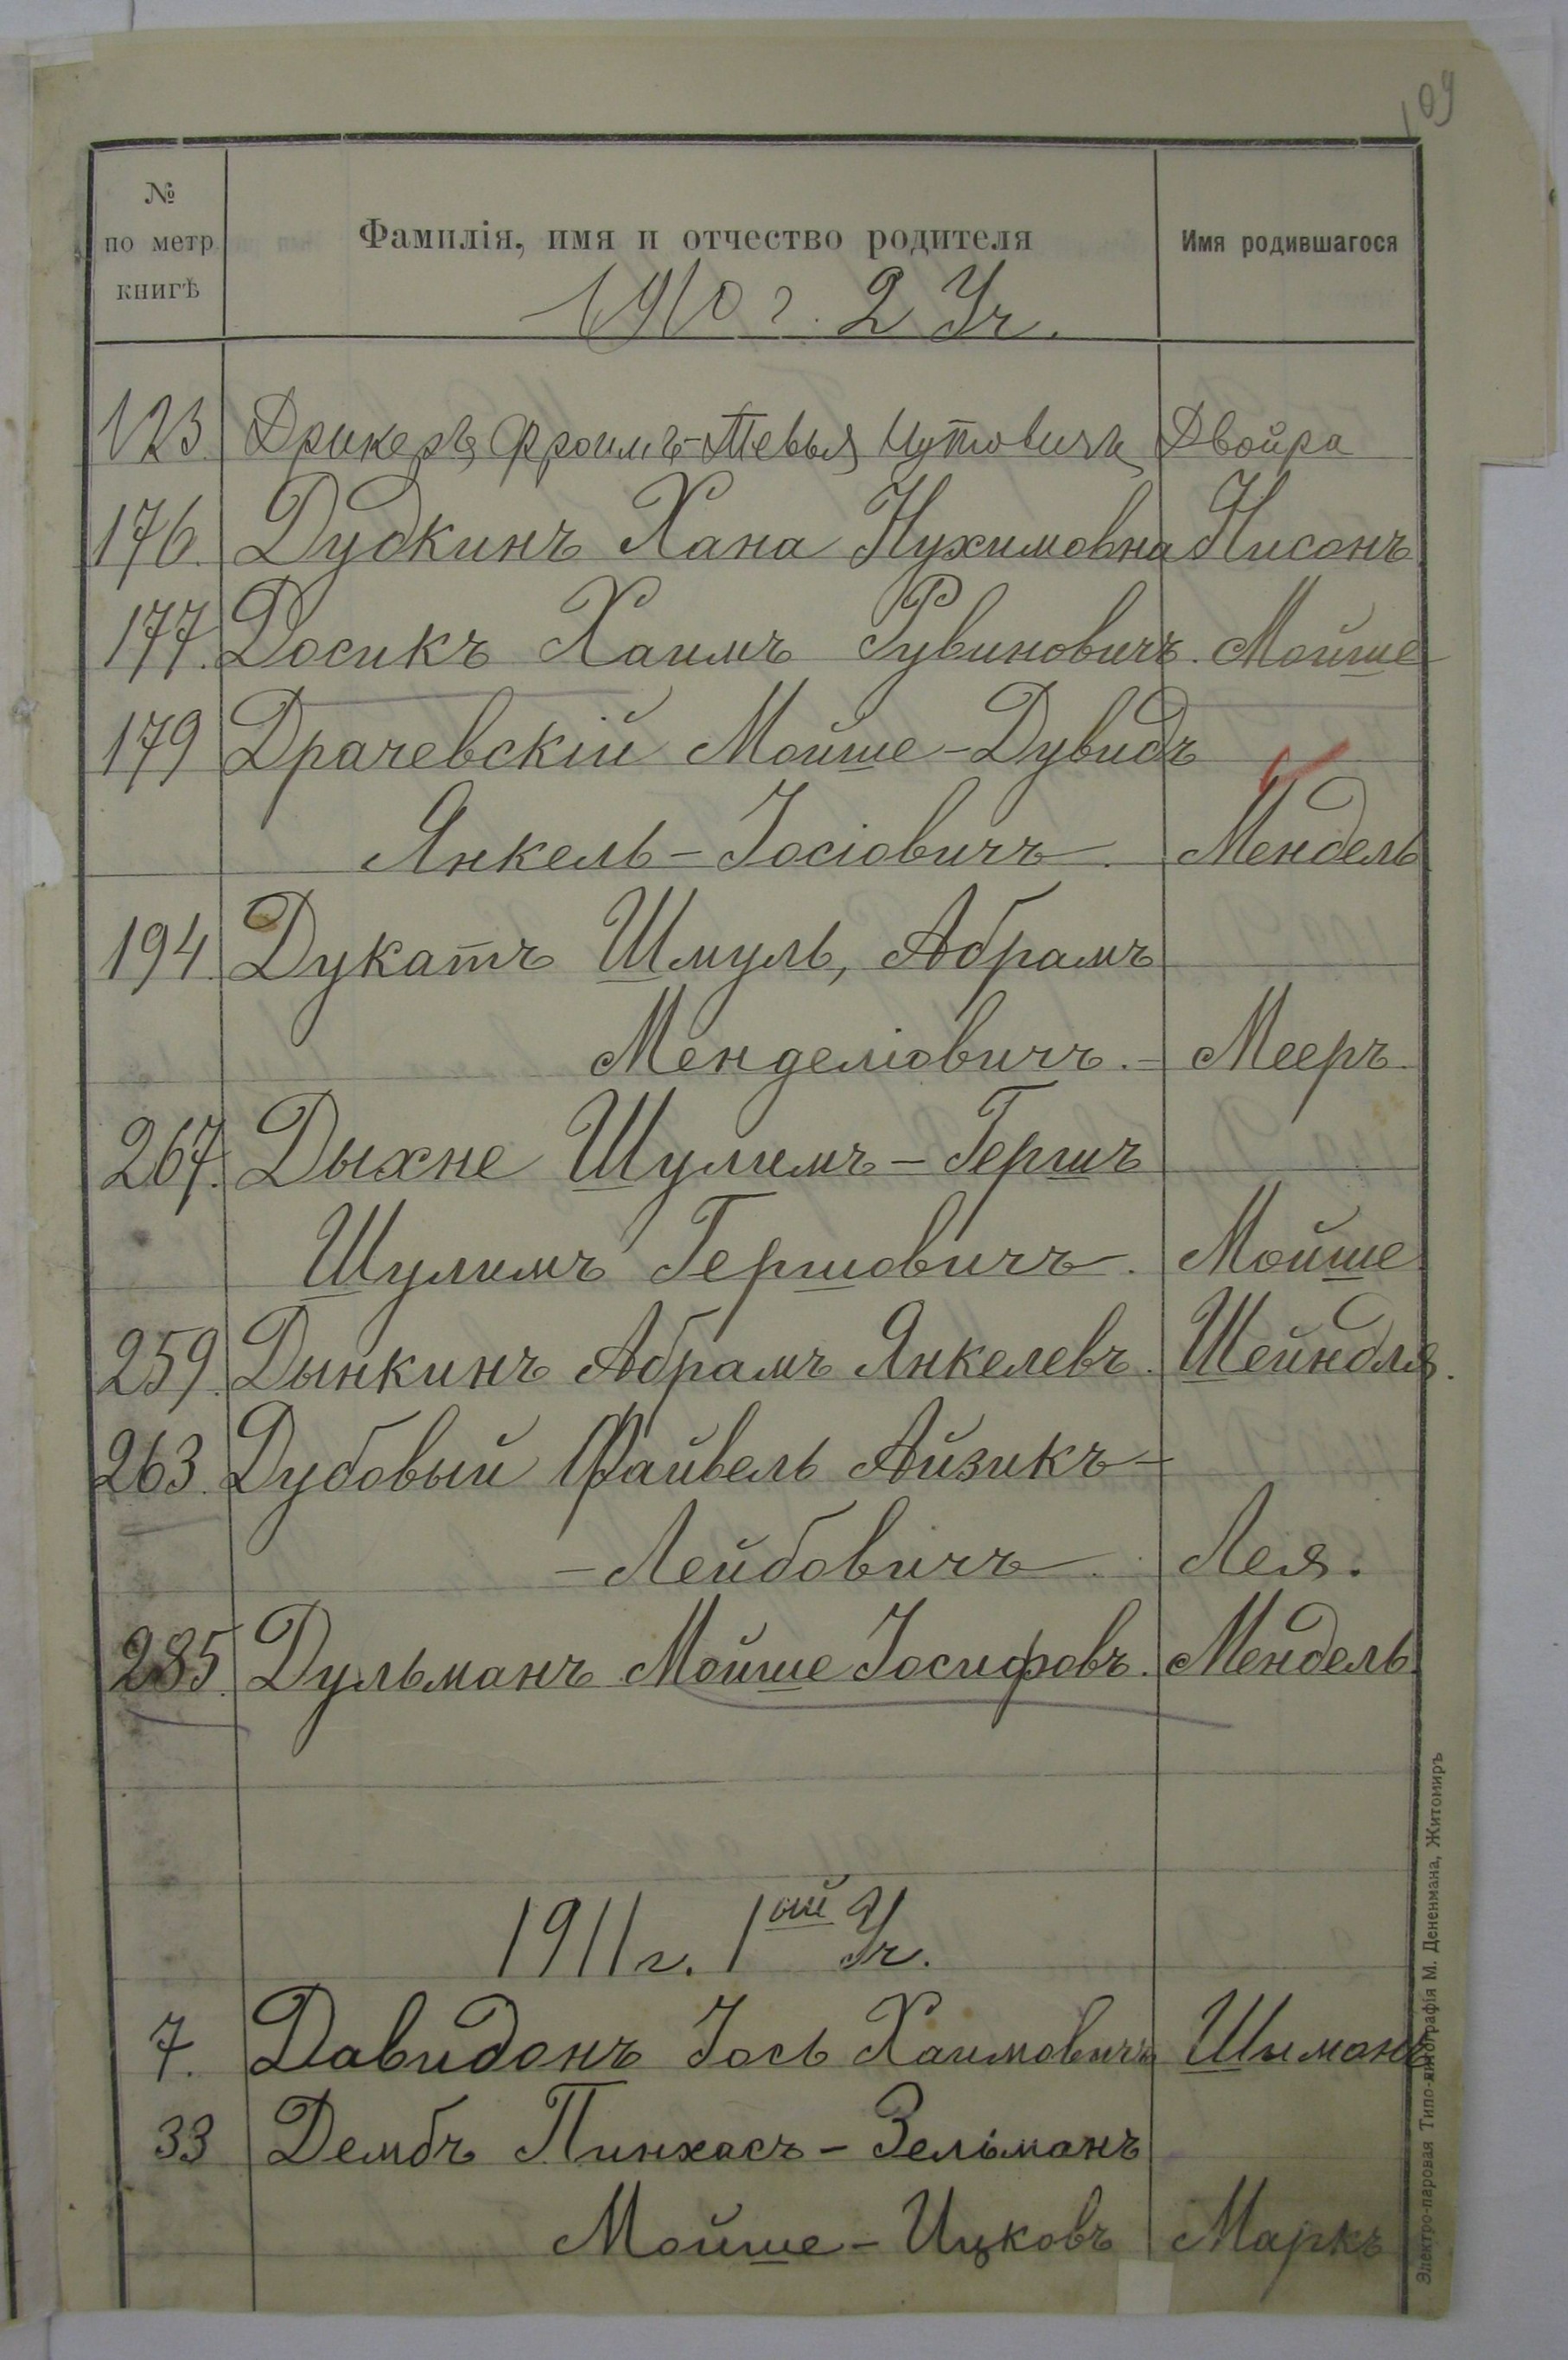 109
№ по метр книгѣ
Фамилія, имя и отчество родителя
Имя родившагося
1910 г. 2 Уч.
123 Дрикеръ, Фроимъ-Тевья Двойра
176. Дудкинъ Хана Нухимовна Нисонъ
177. Досикъ Хаимъ Рувиновичъ. Мойше
179 Драчевскій Мойше-Дувидъ
Янкель-Іосіовичъ. Мендель
194. Дукатъ Шмуль, Абрамъ
Менделіовичъ.- Мееръ
267. Дыхне Шулимъ-Гершъ
Шулимъ Гершовичъ. Мойше
259. Дынкинъ Абрамъ Янкелевъ. Шейндля.
263. Дубовый Файвель Айзикъ-
-Лейбовичъ. Лея.
285. Дульманъ Мойше Іосифовъ. Мендель.
1911 г. 1ый Уч.
7. Давидонъ Іось Хаимовичъ Шимонъ
33 Дембъ Пинхасъ-Зельманъ
Мойше-Ицковъ Маркъ
Электро-паровая Типо-литографія М. Дененмана, Житомиръ